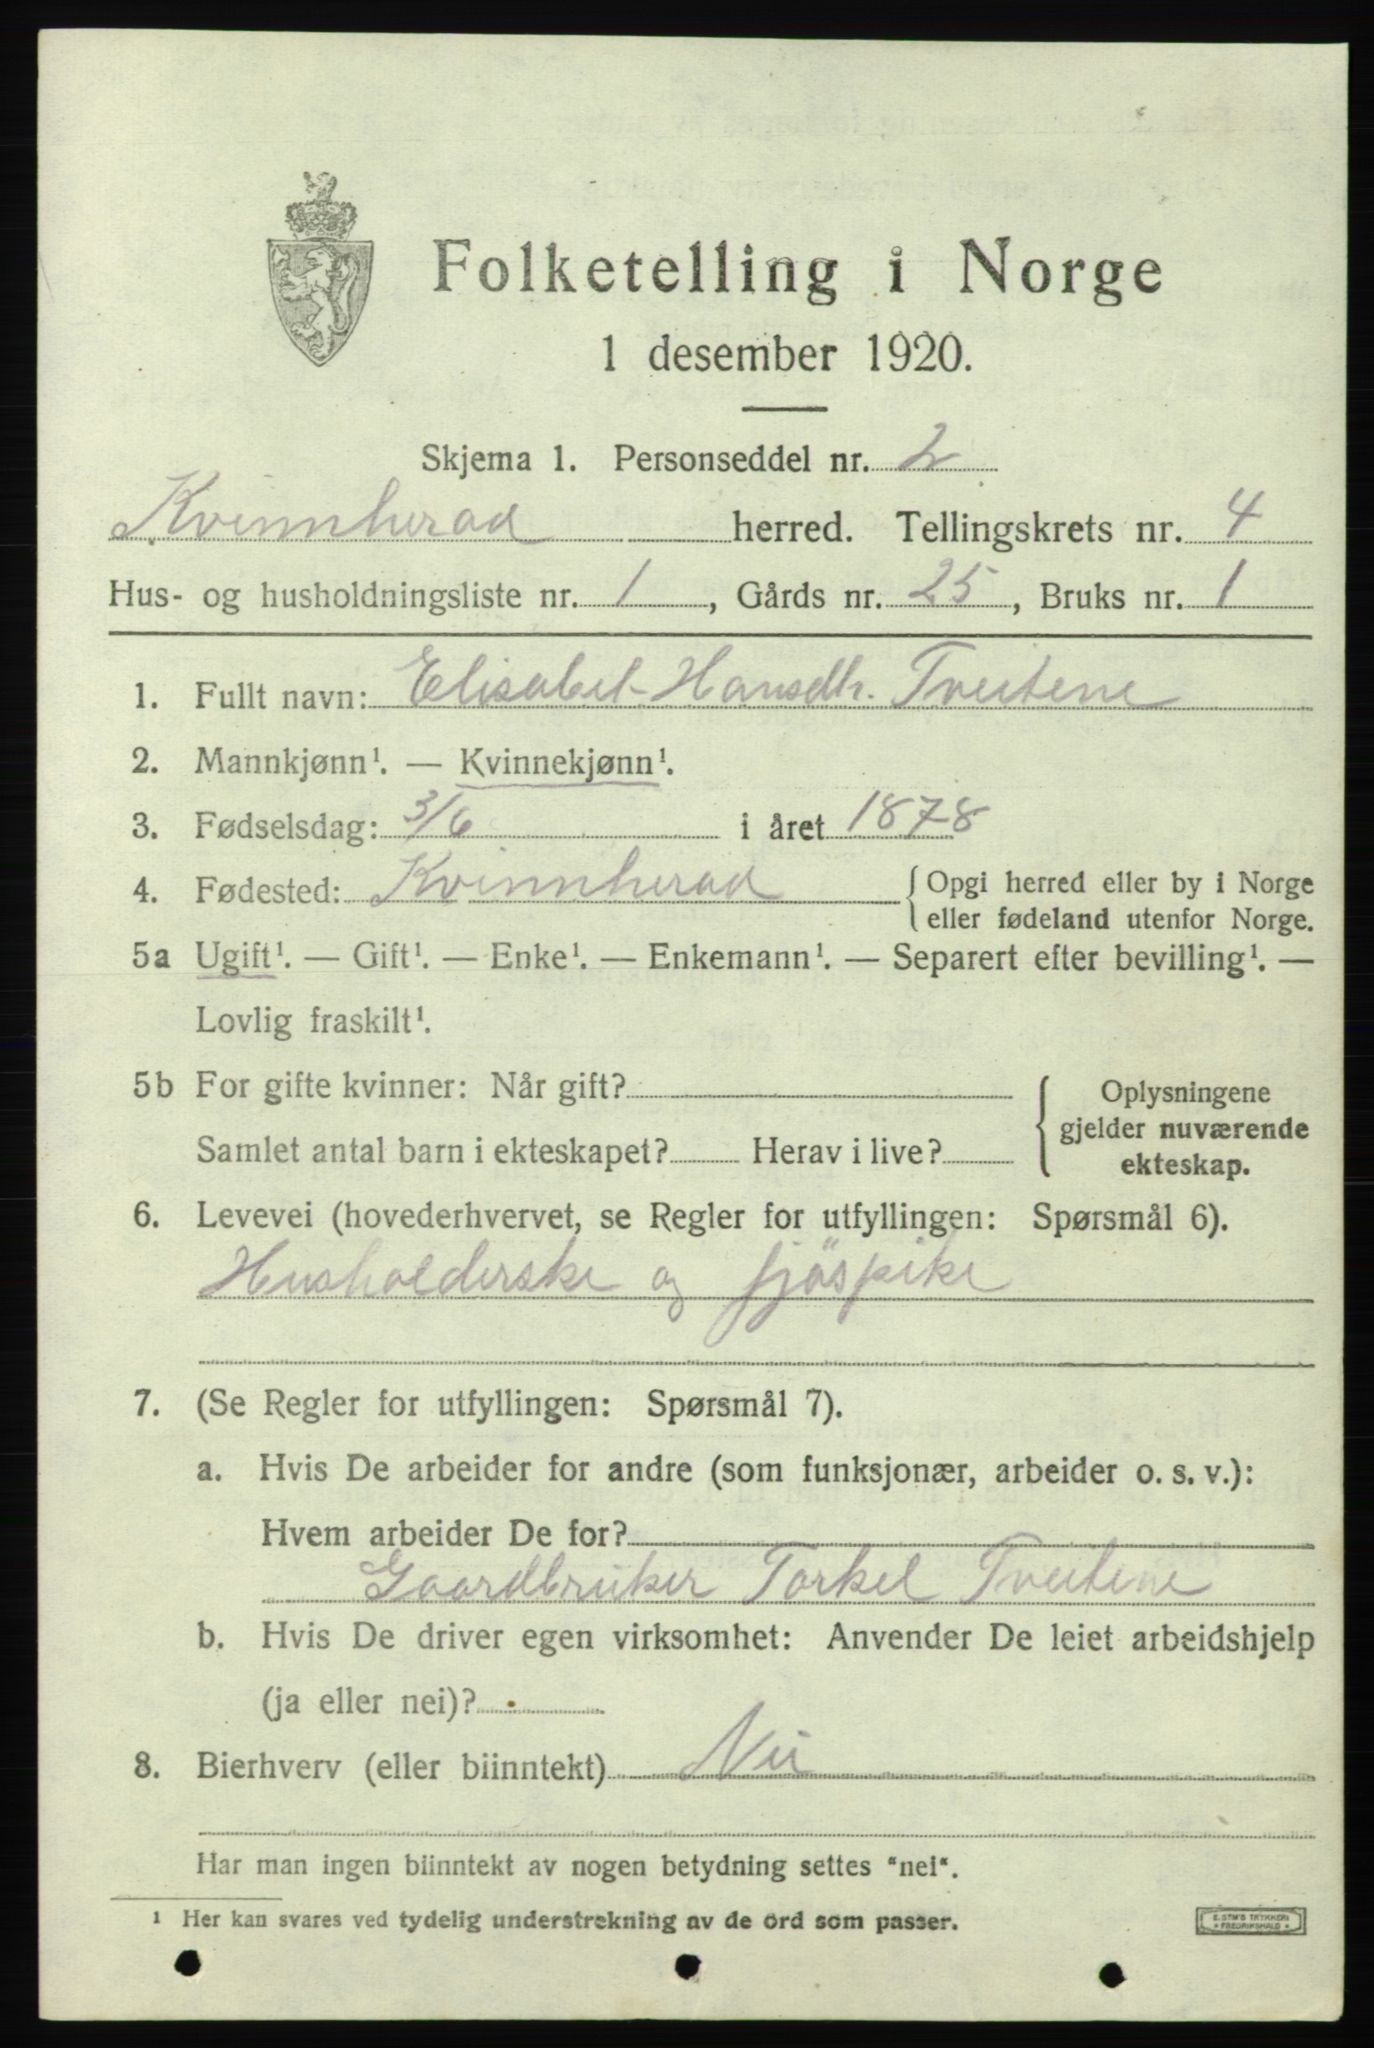 Folketelling i Norge
1 desember 1920.
Skjema 1. Personseddel nr. 2
Kvinnherad herred. Tellingskrets nr. 4
Hus- og husholdningsliste nr. 1, Gårds nr. 25, Bruks nr. 1
1. Fullt navn: Elisabet Hansdtr. Tveitene
2. Mannkjønn¹. — Kvinnekjønn¹.
3. Fødselsdag: 3/6 i året 1878
4. Fødested: Kvinnherad { Opgi herred eller by i Norge
eller fødeland utenfor Norge.
5a Ugift¹. — Gift¹. — Enke¹. — Enkemann¹. — Separert efter bevilling¹. —
Lovlig fraskilt¹.
5b For gifte kvinner: Når gift?
Samlet antal barn i ekteskapet? Herav i live?
{ Oplysningene
gjelder nuværende
ekteskap.
6. Levevei (hovederhvervet, se Regler for utfyllingen: Spørsmål 6).
Husholderske og fjöspike
7. (Se Regler for utfyllingen: Spørsmål 7).
a. Hvis De arbeider for andre (som funksjonær, arbeider o. s. v.):
Hvem arbeider De for?
Gaardbruker Torkel Tveitene
b. Hvis De driver egen virksomhet: Anvender De leiet arbeidshjelp
(ja eller nei)?
8. Bierhverv (eller biinntekt) Nei
Har man ingen biinntekt av nogen betydning settes "nei".
¹ Her kan svares ved tydelig understrekning av de ord som passer.
E. STM'S TRYKKERI
FREDRIKSHALD